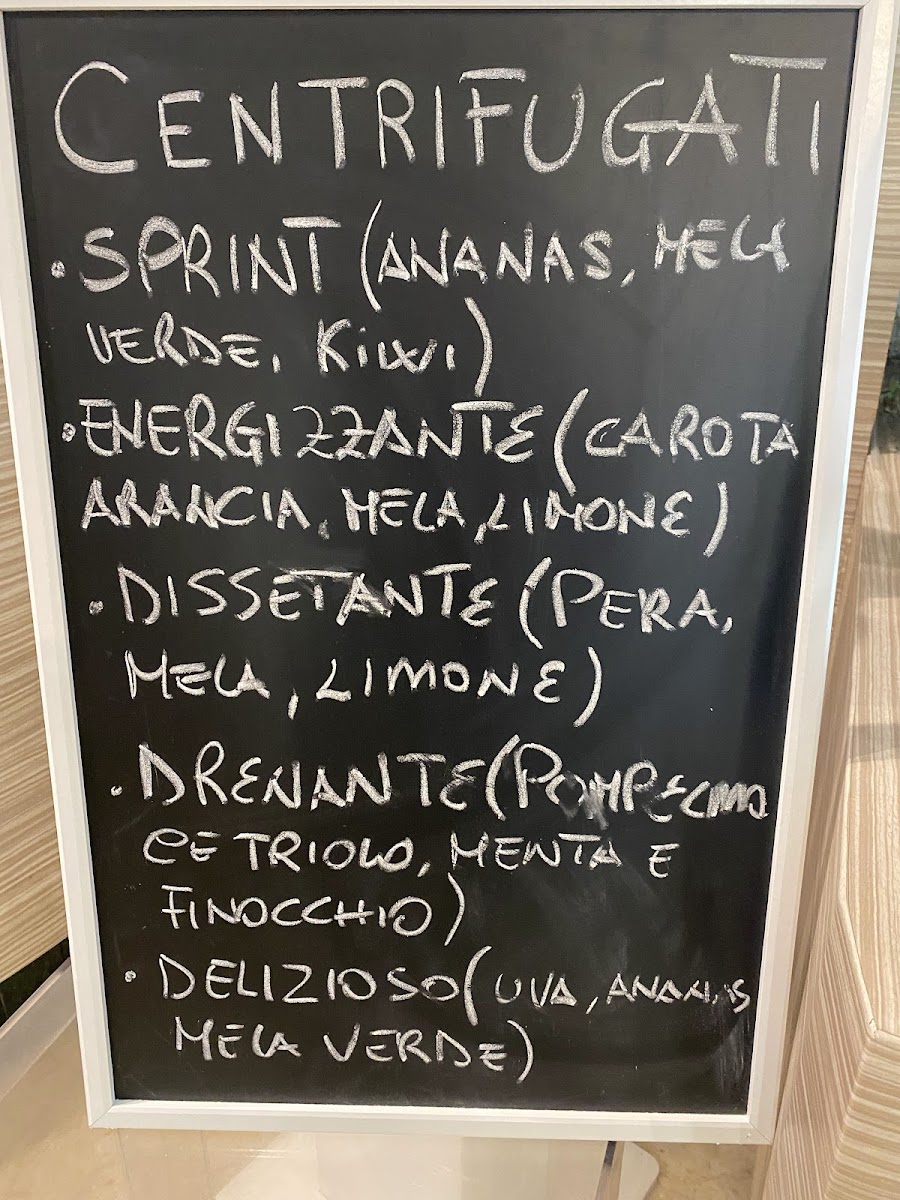 CENTRIFUGATI
• SPRINT (ANANAS, MELA
VERDE, KIWI)
• ENERGIZZANTE (CAROTA
ARANCIA, MELA, LIMONE)
• DISSETANTE (PERA,
MELA, LIMONE)
• DRENANTE (POMPELMO
CETRIOLO, MENTA E
FINOCCHIO)
• DELIZIOSO (UVA, ANANAS
MELA VERDE)